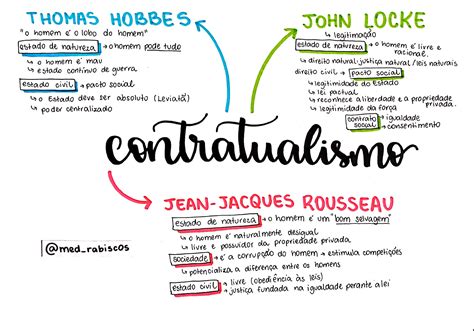 THOMAS HOBBES
"o homem é o lobo do homem"
estado de natureza → o homem pode tudo
↳ o homem é mau
↳ estado contínuo de guerra.
estado civil → pacto social
↳ o Estado deve ser absoluto (Leviatã)
↳ poder centralizado
JOHN LOCKE
↳ legitimação
estado de natureza → o homem é livre e racional.
↳ direito natural: justiça natural / leis naturais
direito civil → pacto social
↳ legitimidade do Estado
↳ lei pactual
↳ reconhece a liberdade e a propriedade privada.
↳ legitimidade da força
contrato social → igualdade
↳ consentimento
contratualismo
JEAN-JACQUES ROUSSEAU
estado de natureza → o homem é um "bom selvagem"
↳ o homem é naturalmente desigual
↳ livre e possuidor da propriedade privada.
sociedade → é a corrupção do homem → estimula competições
↳ potencializa a diferença entre os homens
estado civil → livre (obediência às leis)
↳ justiça fundada na igualdade perante a lei
@med_rabiscos